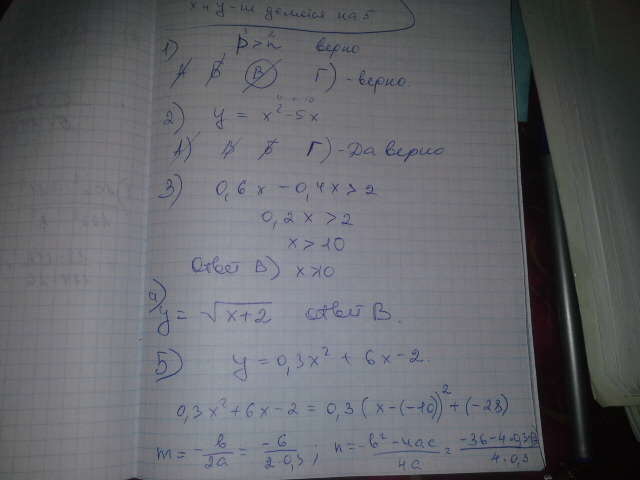 x + y - т делится на 5
1) p > n верно
А Б В Г) - верно.
2) y = x² - 5x
А) Б В Г) - Да верно
3) 0,6x - 0,4x > 2
0,2x > 2
x > 10
Ответ В) x > 10
y = √x+2 ответ В.
5) y = 0,3x² + 6x - 2.
0,3x² + 6x - 2 = 0,3 (x - (-10))² + (-28)
m = -b/2a = -6/2·0,3 ; n = -b² - 4ac/4a = -36 - 4·0,3/4·0,3